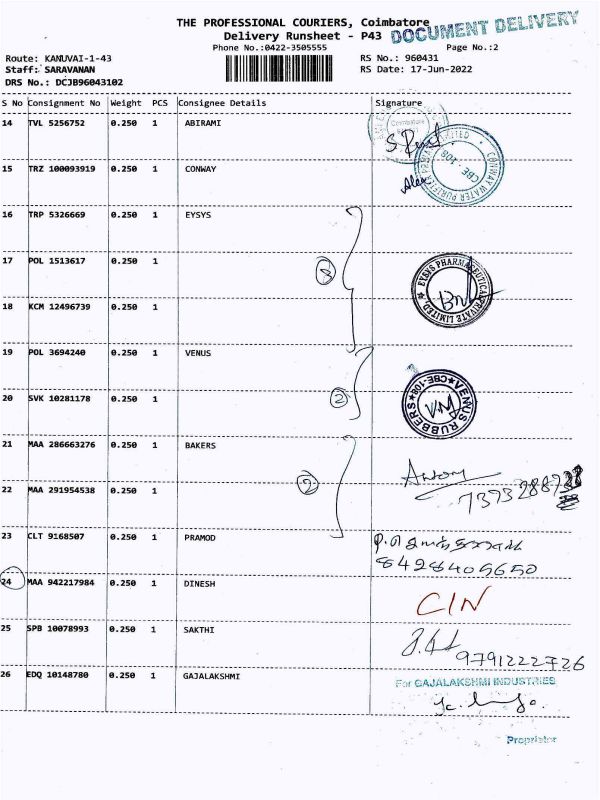 THE PROFESSIONAL COURIERS, Coimbatore
Delivery Runsheet - P43
DOCUMENT DELIVERY
Phone No.:0422-3505555
Page No.:2
Route: KANUVAI-1-43
RS No.: 960431
Staff: SARAVANAN
RS Date: 17-Jun-2022
DRS No.: DCJB96043102
S No Consignment No Weight PCS Consignee Details Signature
14 TVL 5256752 0.250 1 ABIRAMI
Coimbatore
15 TRZ 100093919 0.250 1 CONWAY
CONWAY WATER PURIFIER PRIVATE LIMITED CBE - 108
Alex
16 TRP 5326669 0.250 1 EYSYS
17 POL 1513617 0.250 1
3
EYSYS PHARMACEUTICAL PRIVATE LIMITED
18 KCM 12496739 0.250 1
19 POL 3694240 0.250 1 VENUS
20 SVK 10281178 0.250 1
2
VENUS RUBBERS CBE-108
21 MAA 286663276 0.250 1 BAKERS
22 MAA 291954538 0.250 1
2
Antony
23 CLT 9168507 0.250 1 PRAMOD
8428405650
24 MAA 942217984 0.250 1 DINESH
CIN
25 SPB 10078993 0.250 1 SAKTHI
9791222726
26 EDQ 10148780 0.250 1 GAJALAKSHMI
For GAJALAKSHMI INDUSTRIES
Proprietor